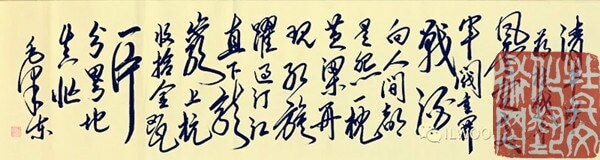 清平乐
風云突变
軍閥重開
戰 洒
向人間都
是怨一枕
黄粱再
现红旗
躍過汀江
直下龍
岩上杭
收拾金瓯
一片
分田分地
真忙
毛泽东